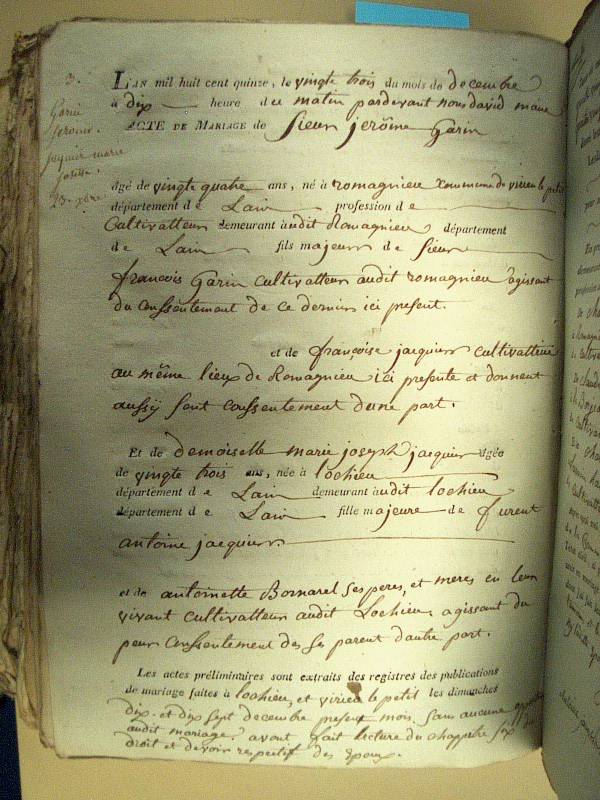 3.
Garin
Jerome.
jaquier marie
josette.
23. xbre
L'AN mil huit cent quinze, le vingte trois du mois de decembre
à dix heure du matin pardevant nous david
ACTE DE MARIAGE de Sieur jerôme Garin
âgé de vingte quatre ans, né à romagnieu commune de virieu le petit
département de Lain profession de
Cultivatteur demeurant audit Romagnieu département
de Lain fils majeur de Sieur
françois Garin cultivatteur audit romagnieu agissant
du conssentement de ce dernier ici present.
et de françoise jacquier cultivatteur
au même lieux de Romagnieu ici presente et donnent
aussÿ sont conssentement dune part.
Et de demoiselle marie joseph jacquier âgée
de vingte trois ans, née à lochieu
département de Lain demeurant audit lochieu
département de Lain fille majeure de furent
antoine jacquier.
et de antoinette Bornarel ses peres, et meres en leur
vivant cultivatteur audit Lochieu agissant du
peur conssentement des ses parent dautre part.
Les actes préliminaires sont extraits des registres des publications
de mariage faites à lochieu, et virieu le petit les dimanches
dix et dix sept decembre present mois, sans aucune
audit mariage. avont fait lecture du chappitre six du
droit et devoir respectif des Epoux.